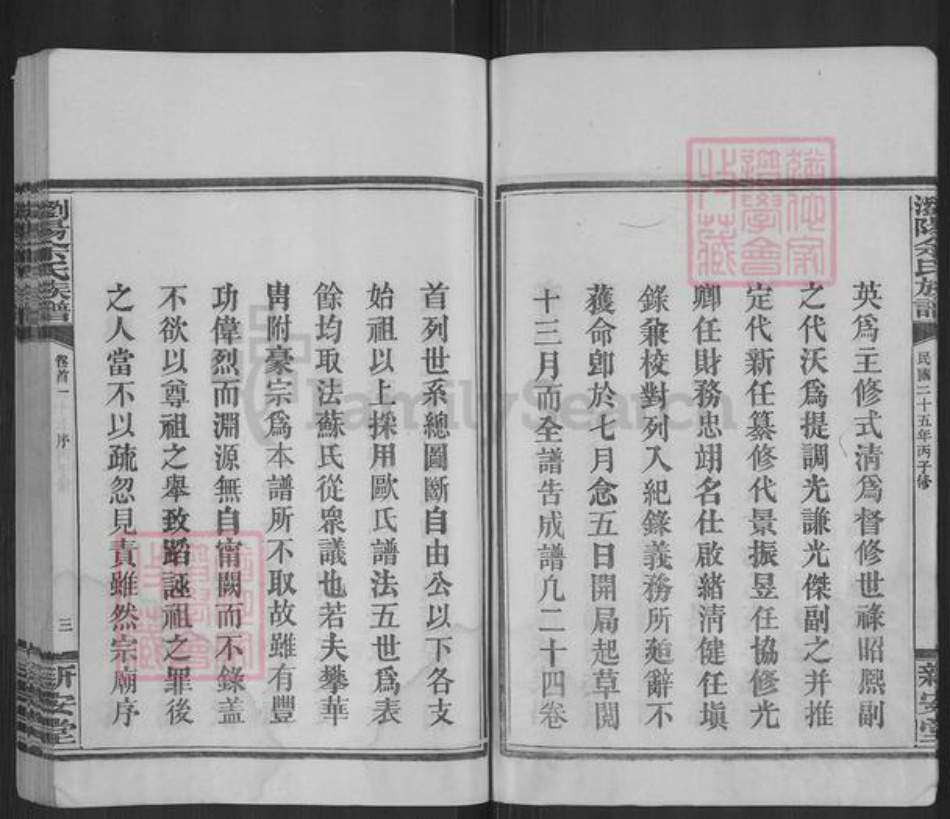 瀏陽余氏族譜
民國二十五年丙子修
新安堂
英爲主修式清爲督修世祿昭熈副
之代沃爲提調光謙光傑副之并推
定代新任纂修代景振昱任協修光
卿任財務忠翊名仕啟緒淸健任塡
錄兼校對列入紀錄義務所廹辭不
獲命卽於七月念五日開局起草閲
十三月而全譜告成譜凢二十四卷
首列世系總圖斷自由公以下各支
始祖以上採用歐氏譜法五世爲表
餘均取法蘇氏從衆議也若夫攀華
胄附豪宗爲本譜所不取故雖有豐
功偉烈而淵源無自甯闕而不錄蓋
不欲以尊祖之舉致蹈誣祖之罪後
之人當不以疏忽見責雖然宗廟序
瀏陽余氏族譜
卷首一
序
三
新安堂
FamilySearch